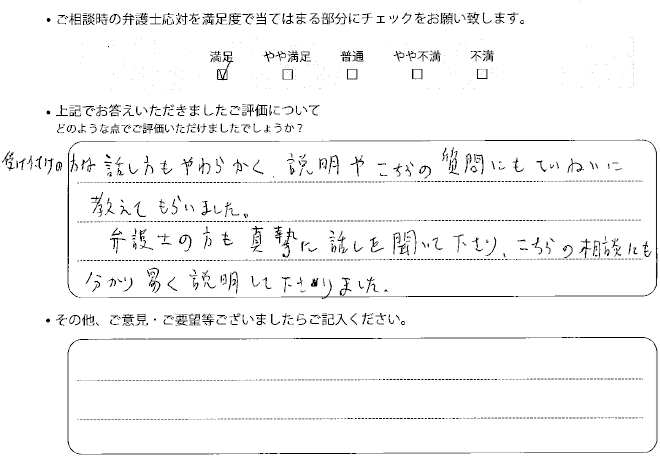 ・ご相談時の弁護士応対を満足度で当てはまる部分にチェックをお願い致します。
満足 やや満足 普通 やや不満 不満
☑ □ □ □ □
・上記でお答えいただきましたご評価について
どのような点でご評価いただけましたでしょうか？
受け付けの方は話し方もやわらかく、説明やこちらの質問にもていねいに
教えてもらいました。
弁護士の方も真摯に話しを聞いて下さり、こちらの相談にも
分かり易く説明して下さりました。
・その他、ご意見・ご要望等ございましたらご記入ください。